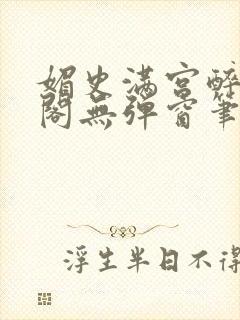 媚史满宫醉
阁无弹窗笔
浮生半日不得